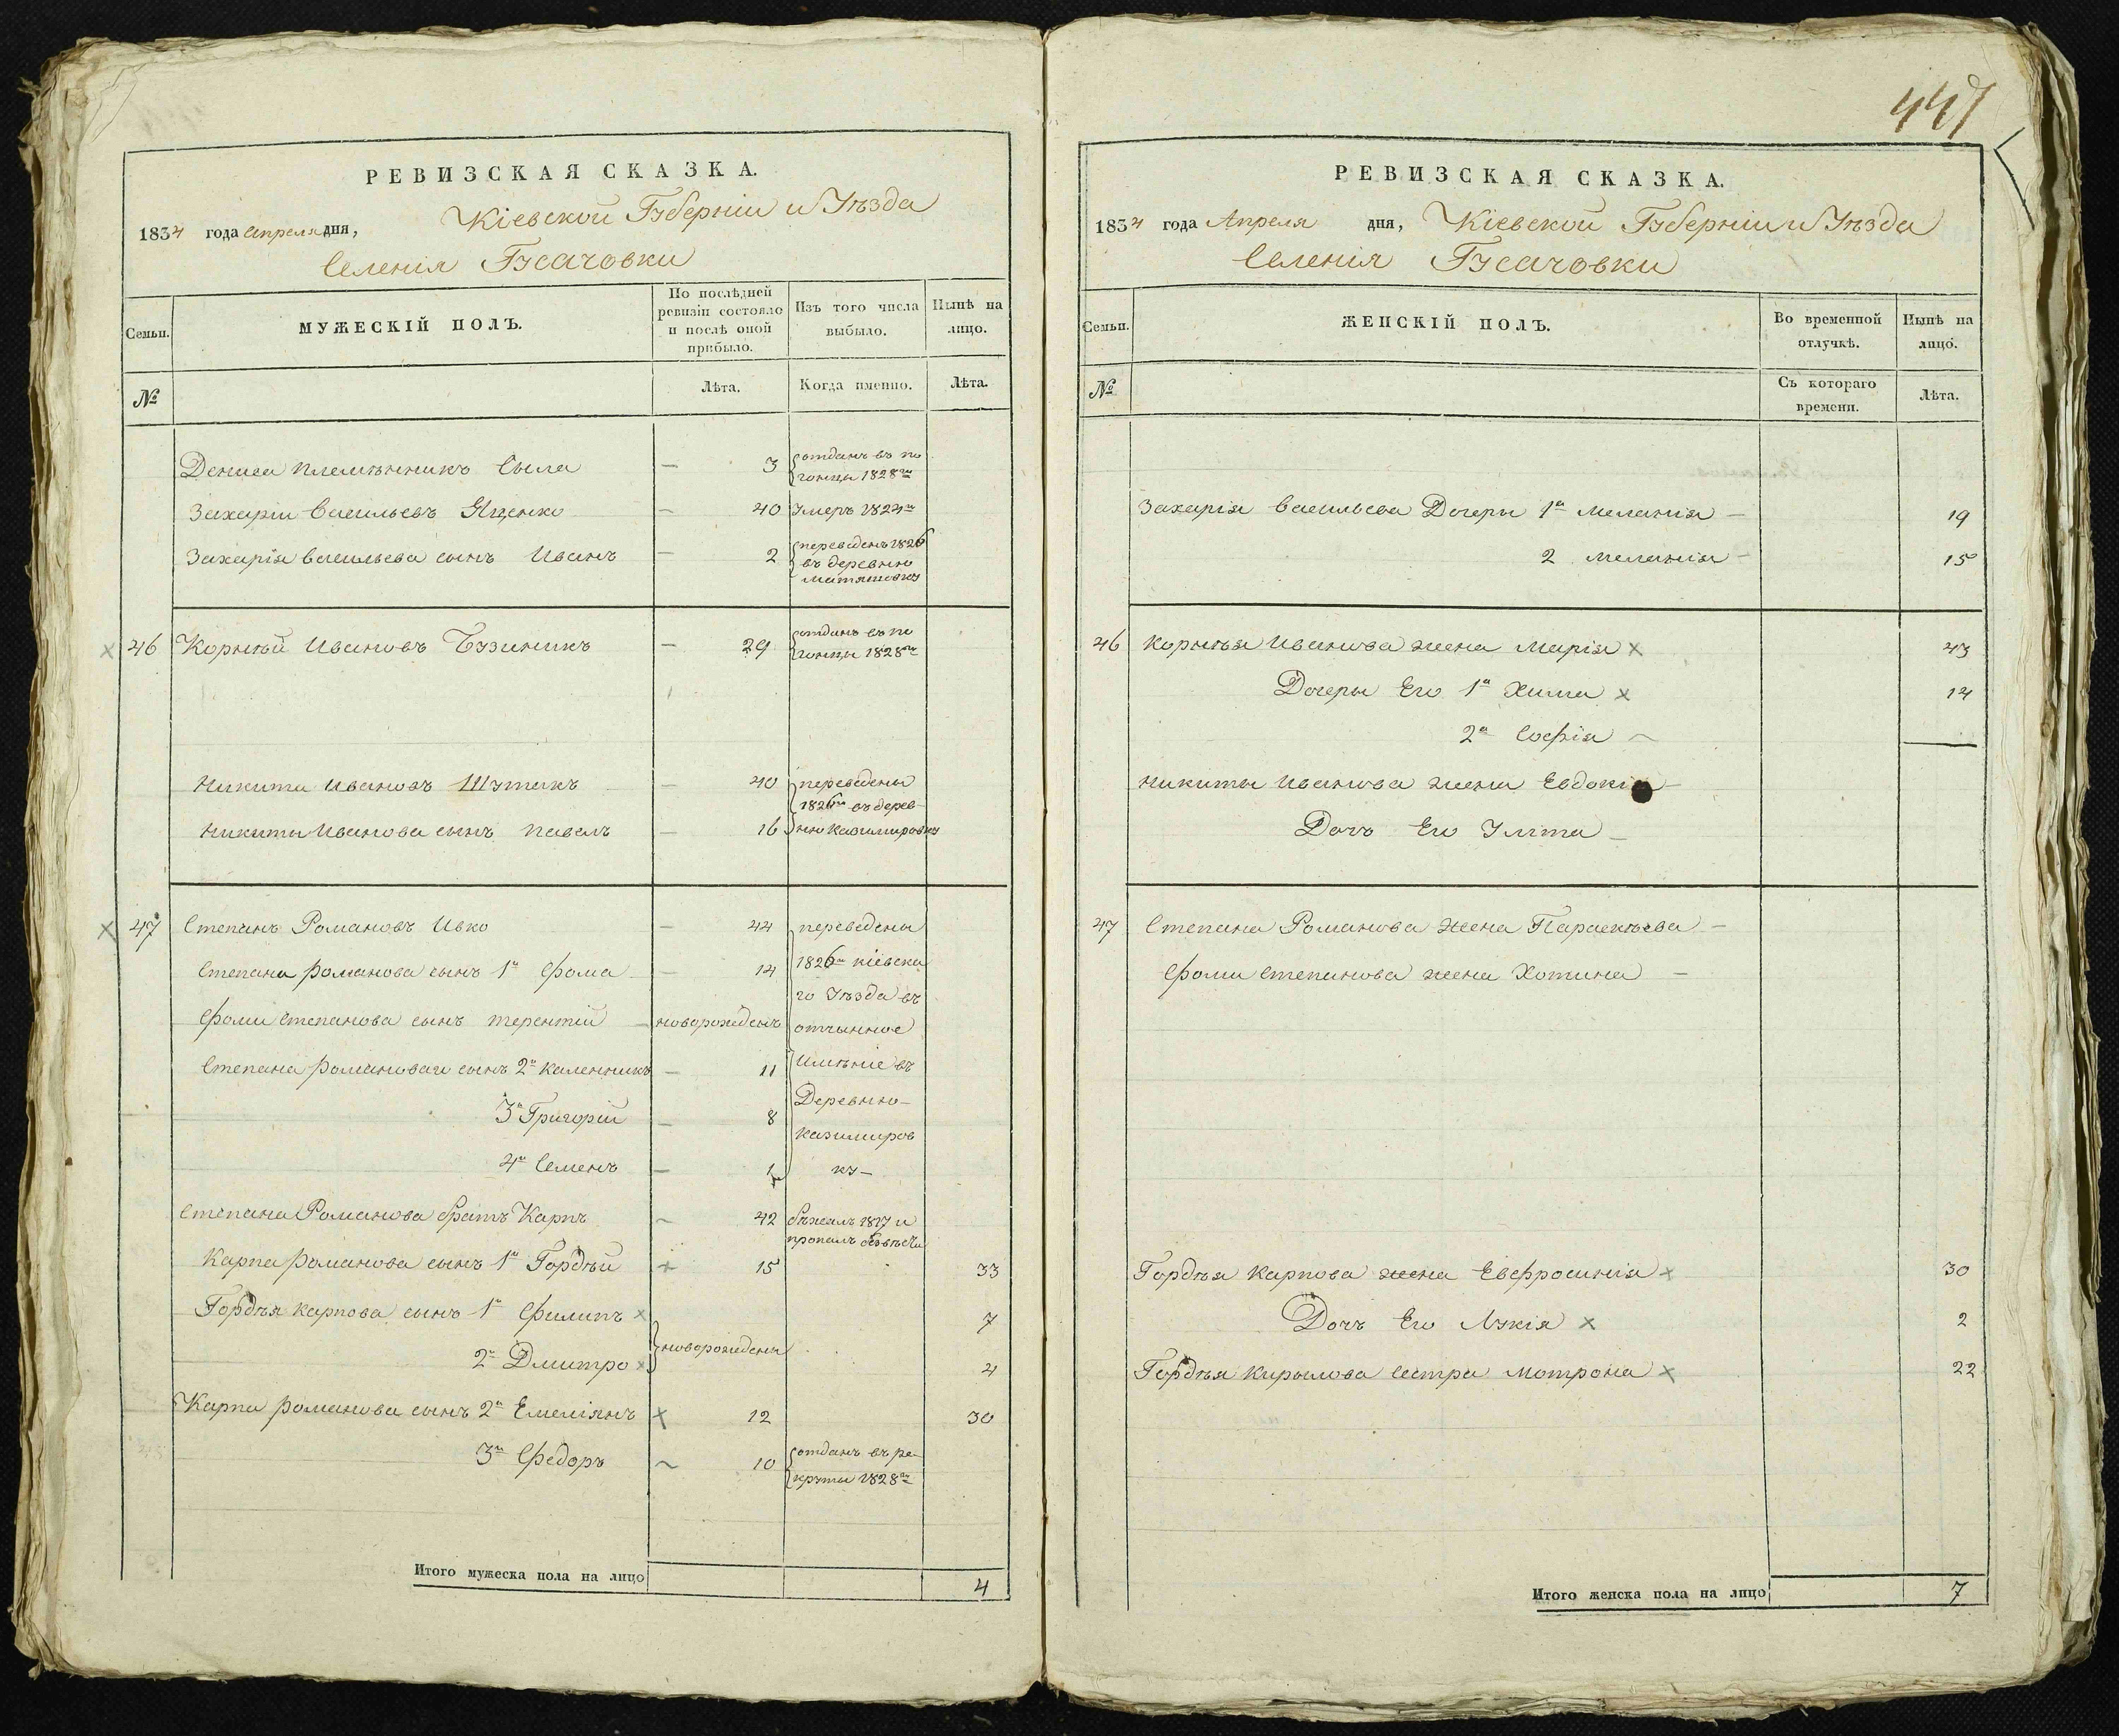 РЕВИЗСКАЯ СКАЗКА.
1834 года Апреля дня, Кіевской Губерніи и Уѣзда
Селенія Гусачовки
Семьи.
МУЖЕСКІЙ ПОЛЪ.
По послѣдней ревизіи состояло и послѣ оной прибыло.
Изъ того числа выбыло.
Нынѣ на лицо.
№
Лѣта.
Когда именно.
Лѣта.
Дениса племѣнникъ Сыла — 3 отданъ въ по
гонцы 1828го
Захарій Васильевъ Яценко — 40 Умеръ 1824го
Захарія Васильева сынъ Иванъ — 2 переведенъ 1826
въ деревню
Матяшовку
46 Корнѣй Ивановъ Бузиникъ — 29 отданъ въ по
гонцы 1828го
Никита Ивановъ Шутакъ — 40 переведены
1826го въ дерев
Никиты Иванова сынъ Павелъ — 16 ню Казимировку
47 Степанъ Романовъ Ивко — 44 переведены
Степана Романова сынъ 1й Фома — 14 1826го кіевска
го Уѣзда въ
Фоми Степанова сынъ Терентій — новорожденъ отчынное
Степана Романоваго сынъ 2й Каленникъ — 11 Имѣніе въ
Деревню
3й Григорій — 8 Казимиров
4й Семенъ — 1 ку —
Степана Романова братъ Карпъ 42 бѣжалъ 1817 и
пропалъ безвѣсти
Карпа Романова сынъ 1й Гордѣй 15 33
Гордѣя Карпова сынъ 1й Филипъ × 7
новорождены
2й Дмитро × 4
Карпа Романова сынъ 2й Емеліянъ × 12 30
3й Федоръ 10 отданъ въ ре
круты 1828го
Итого мужеска пола на лицо 4
447
РЕВИЗСКАЯ СКАЗКА.
1834 года Апреля дня, Кіевской Губерніи и Уѣзда
Селенія Гусачовки
Семьи.
ЖЕНСКІЙ ПОЛЪ.
Во временной отлучкѣ.
Нынѣ на лицо.
№
Съ котораго времени.
Лѣта.
Захарія Васильева Дочери 1я Меланія — 19
2 Меланія — 15
46 Корнѣя Иванова жена Марія × 43
Дочери Его 1я Хима × 14
2я Софія
Никиты Иванова жена Евдокія —
Дочь Его Улита —
47 Степана Романова жена Параскѣева —
Фоми Степанова жена Хотина —
Гордѣя Карпова жена Евфросинія × 30
Дочь Его Лукія × 2
Гордѣя Кирылова Сестра Мотрона × 22
Итого женска пола на лицо 7